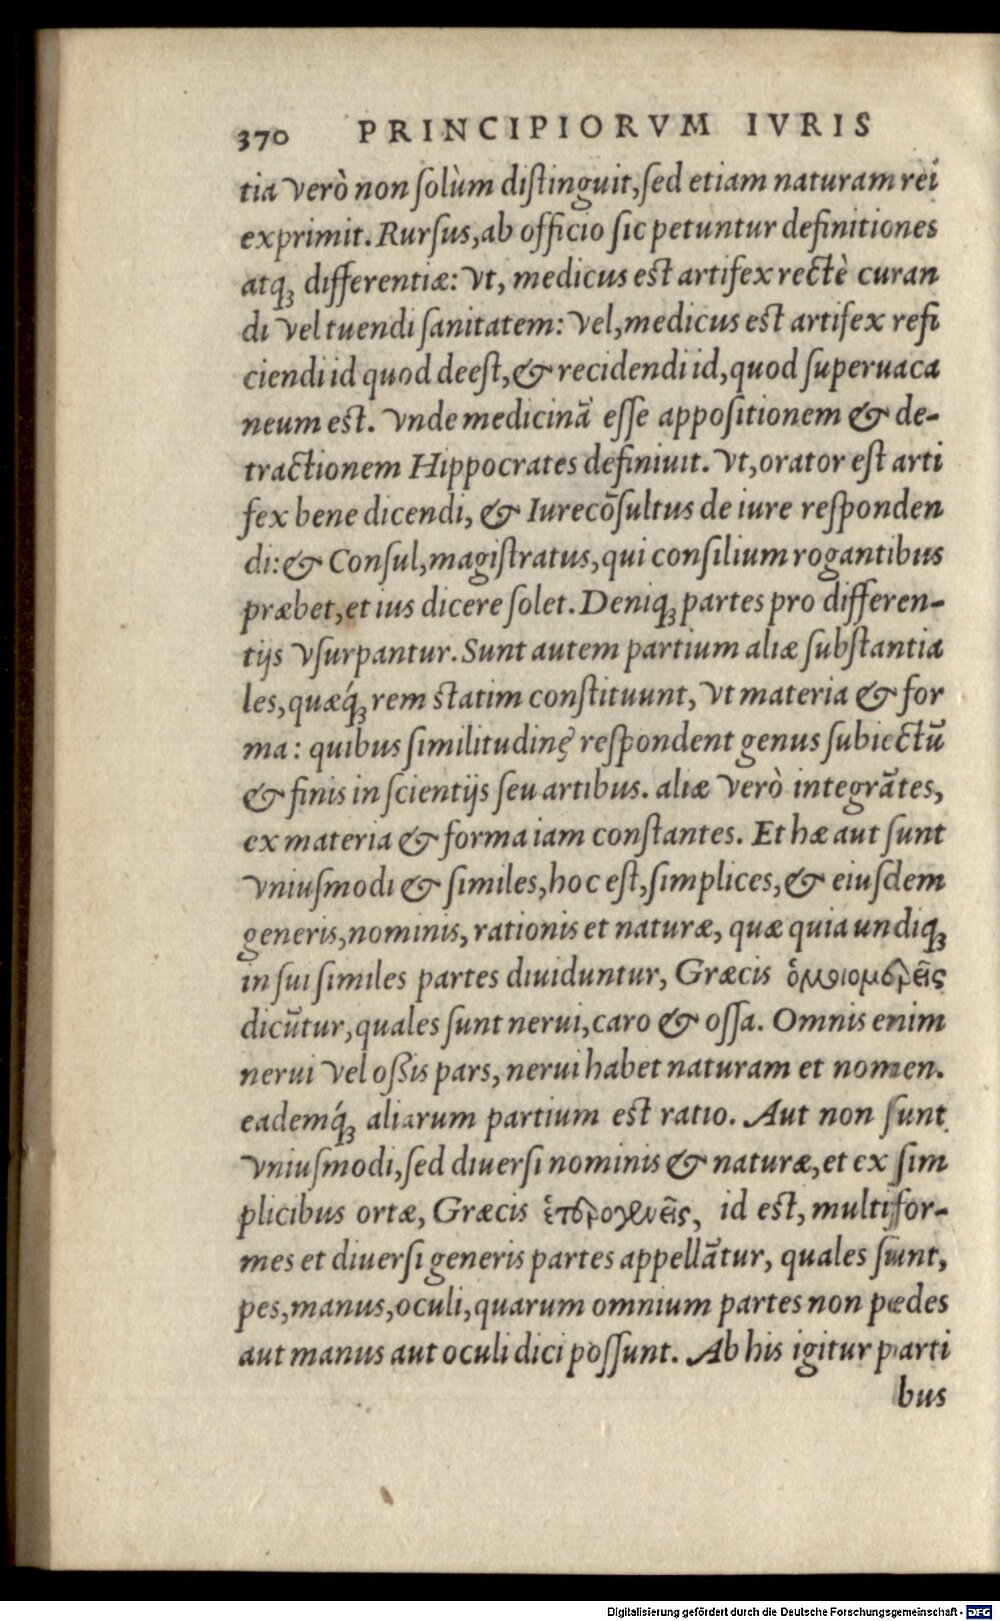 370 PRINCIPIORVM IVRIS
tia verò non ſolùm diſtinguit, ſed etiam naturam rei
exprimit. Rurſus, ab officio ſic petuntur definitiones
atq; differentiæ: vt, medicus eſt artifex rectè curan
di vel tuendi ſanitatem: vel, medicus eſt artifex refi
ciendi id quod deeſt, & recidendi id, quod ſuperuaca
neum eſt. vnde medicinā eſſe appoſitionem & de-
tractionem Hippocrates definiuit. vt, orator eſt arti
fex bene dicendi, & Iurecōſultus de iure reſponden
di: & Conſul, magiſtratus, qui conſilium rogantibus
præbet, et ius dicere ſolet. Deniq; partes pro differen-
tijs vſurpantur. Sunt autem partium aliæ ſubſtantia
les, quæq́; rem ſtatim conſtituunt, vt materia & for
ma: quibus ſimilitudinę reſpondent genus ſubiectū
& finis in ſcientijs ſeu artibus. aliæ verò integrātes,
ex materia & forma iam conſtantes. Et hæ aut ſunt
vniuſmodi & ſimiles, hoc eſt, ſimplices, & eiuſdem
generis, nominis, rationis et naturæ, quæ quia undiq;
in ſui ſimiles partes diuiduntur, Græcis ὁμοιομερεῖς
dicūtur, quales ſunt nerui, caro & oſſa. Omnis enim
nerui vel oßis pars, nerui habet naturam et nomen.
eademq́; aliarum partium eſt ratio. Aut non ſunt
vniuſmodi, ſed diuerſi nominis & naturæ, et ex ſim
plicibus ortæ, Græcis ἑτερογενεῖς, id eſt, multifor-
mes et diuerſi generis partes appellātur, quales ſunt,
pes, manus, oculi, quarum omnium partes non pedes
aut manus aut oculi dici poſſunt. Ab his igitur parti
bus
Digitalisierung gefördert durch die Deutsche Forschungsgemeinschaft - DFG